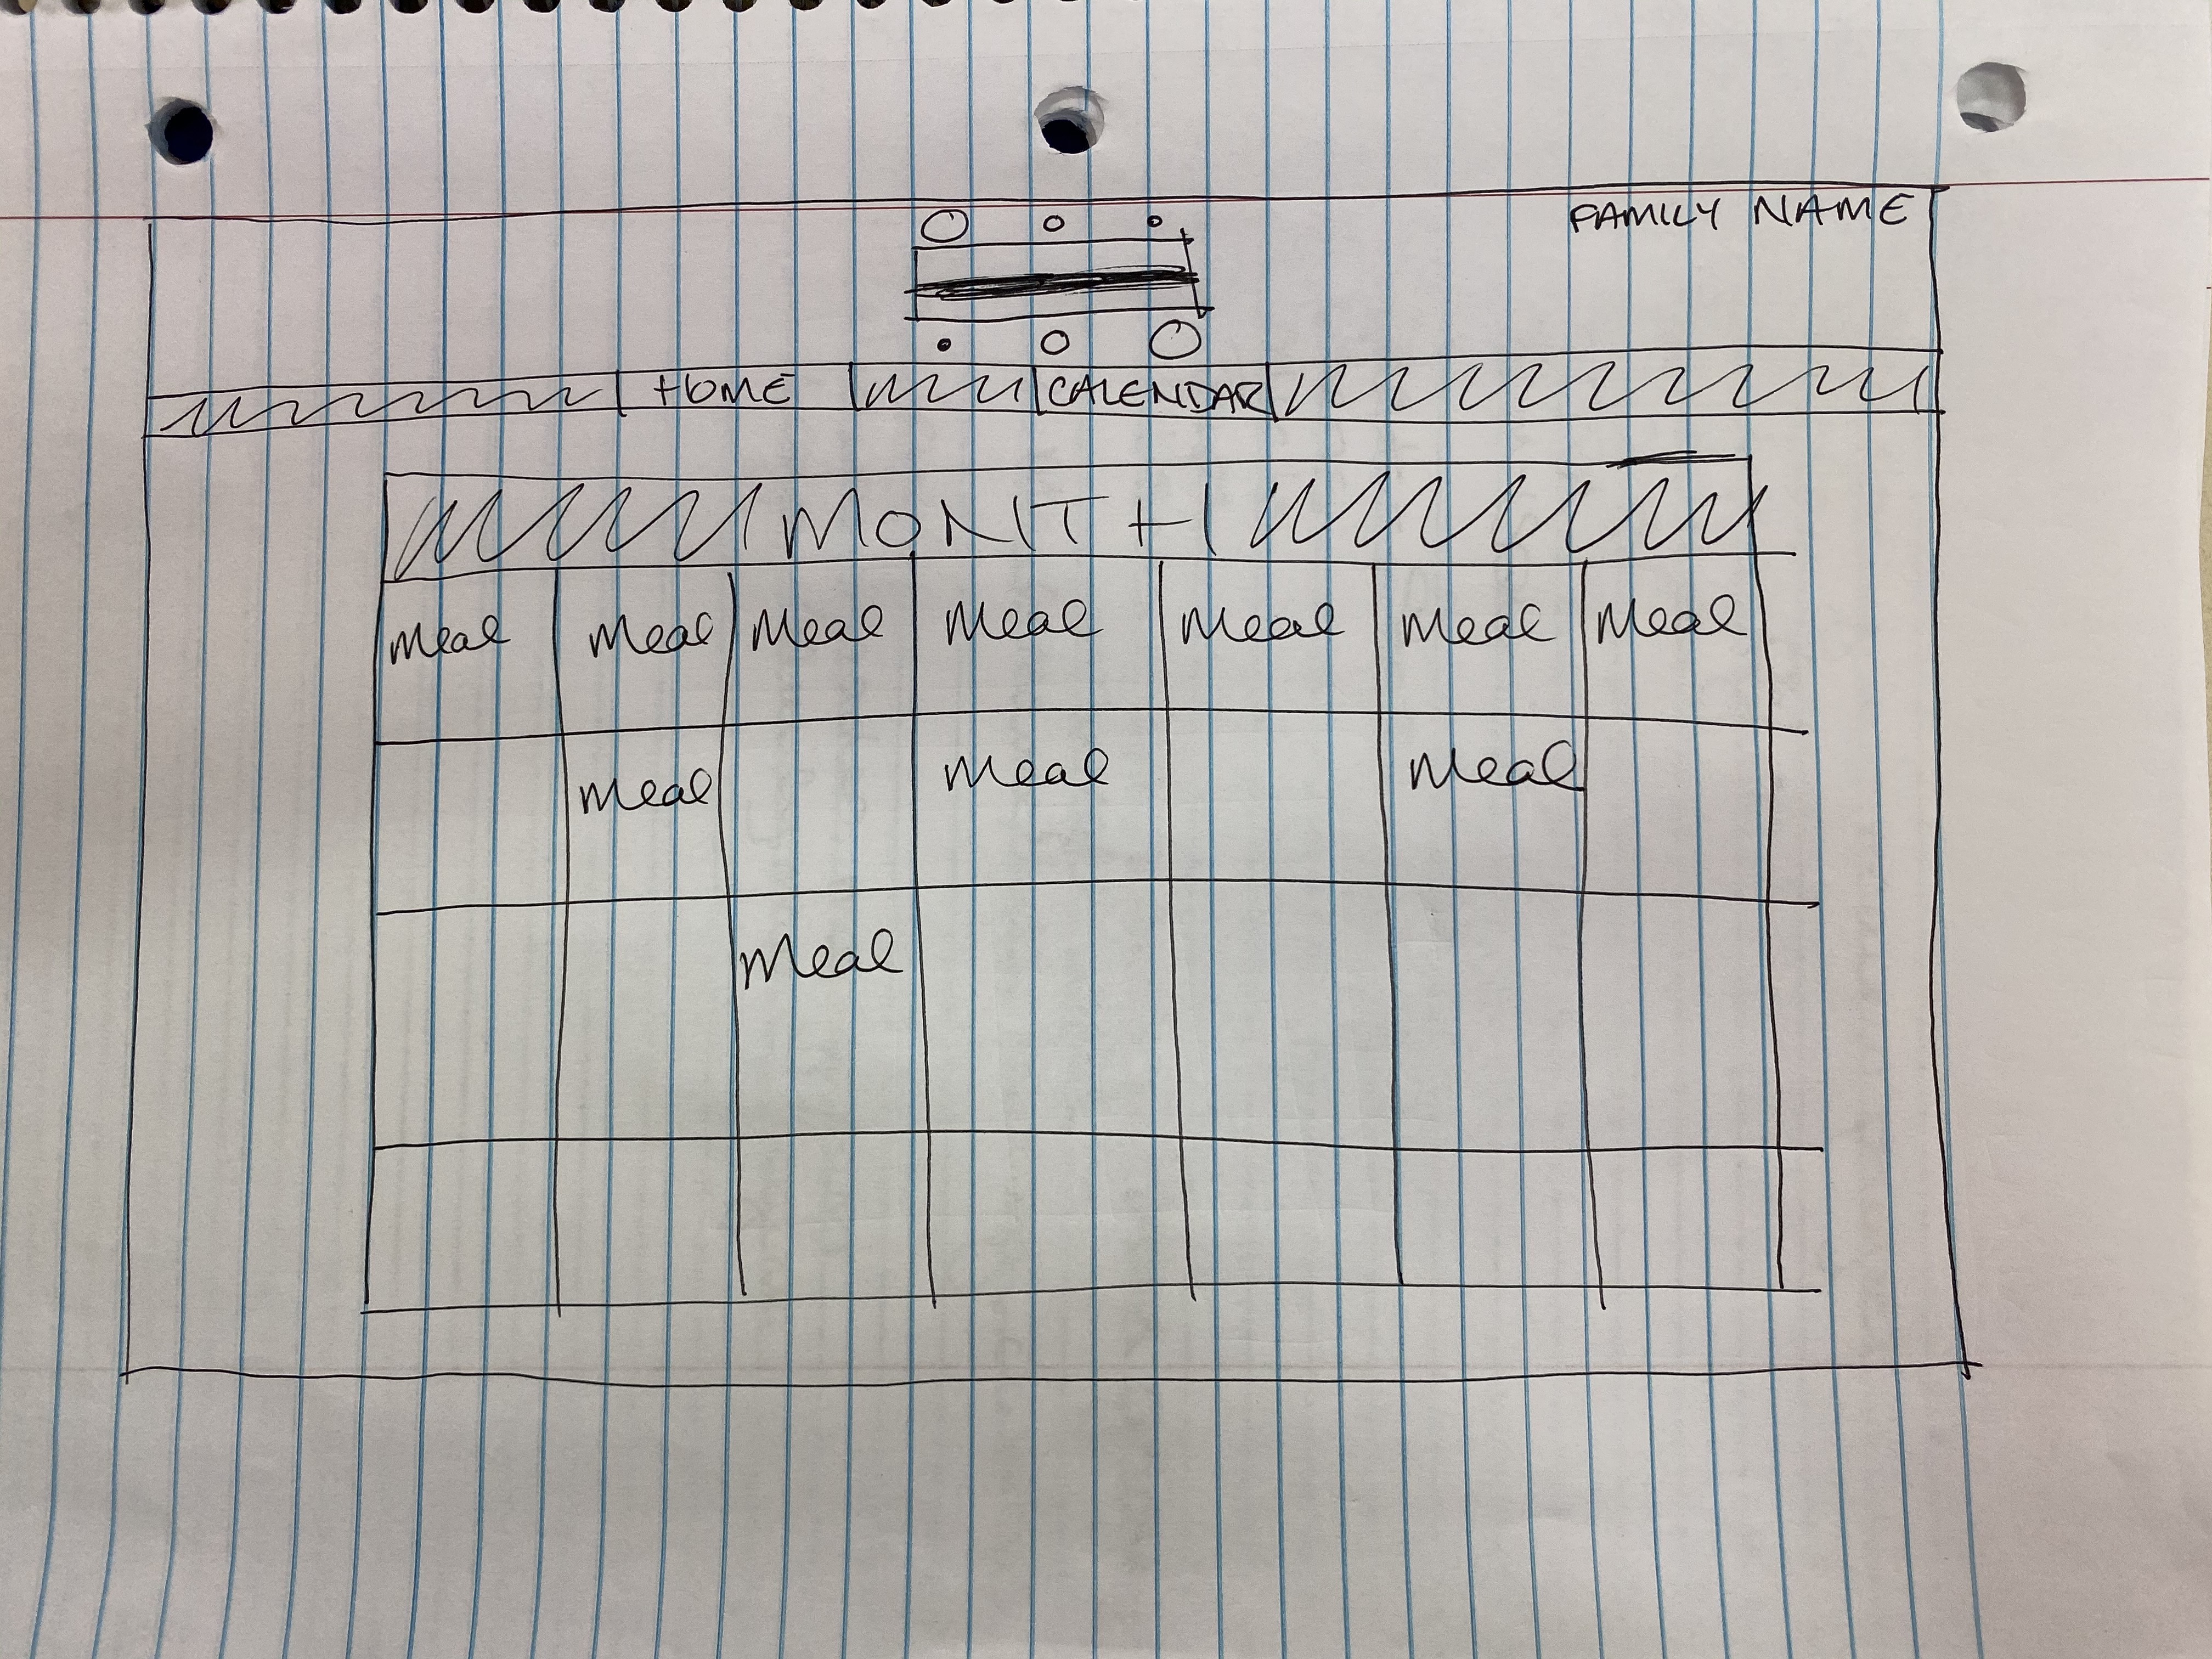 FAMILY NAME
HOME CALENDAR
MONTH
Meal Meal Meal Meal Meal Meal Meal
Meal Meal Meal
Meal